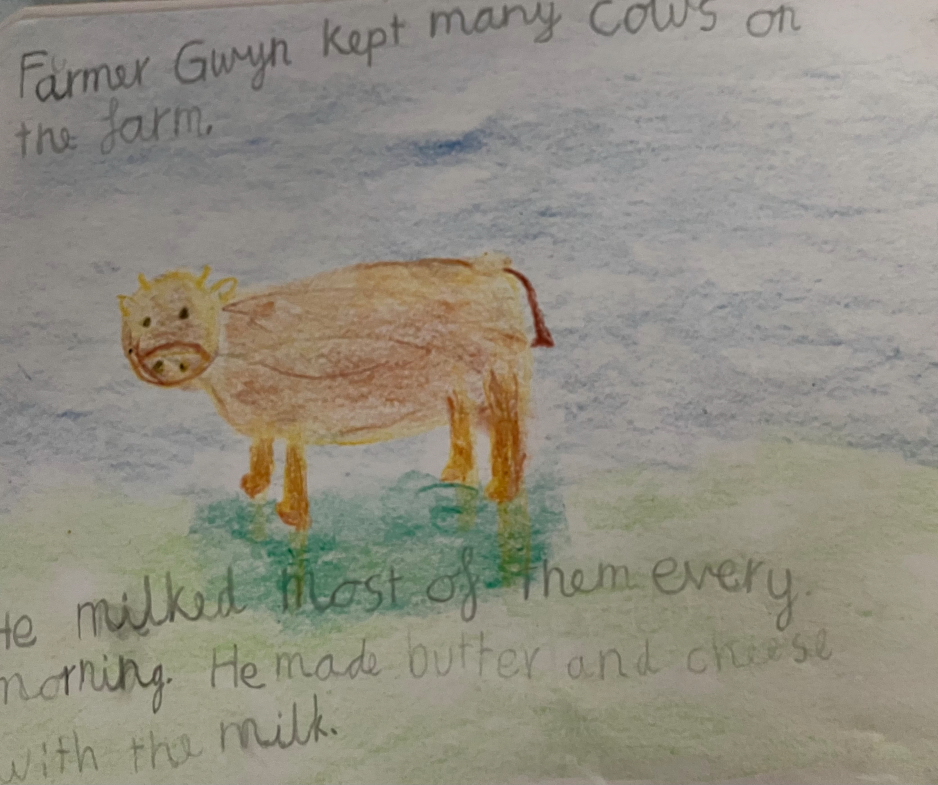 Farmer Gwyn kept many cows on
the farm.
He milked most of them every
morning. He made butter and cheese
with the milk.